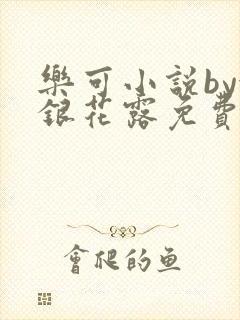 樂可小説by
銀花露免費
會爬的鱼